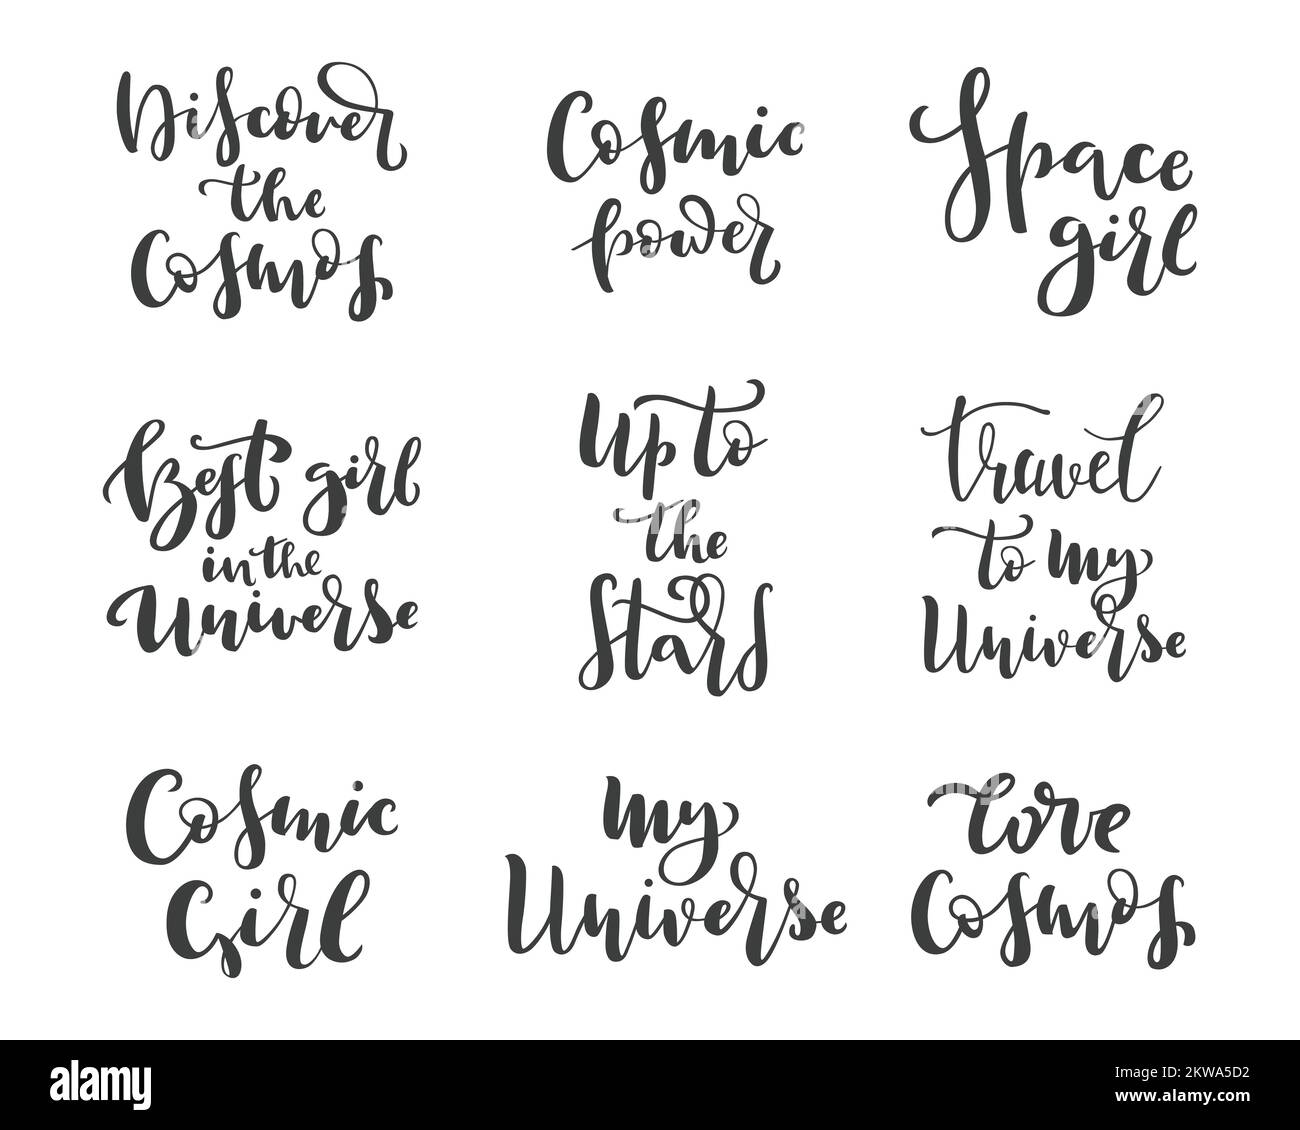 Discover
the
Cosmos
Cosmic
power
Space
girl
Best girl
in the
Universe
Up to
the
Stars
Travel
to my
Universe
Cosmic
Girl
my
Universe
Love
Cosmos
alamy
Image ID: 2KWA5D2
www.alamy.com